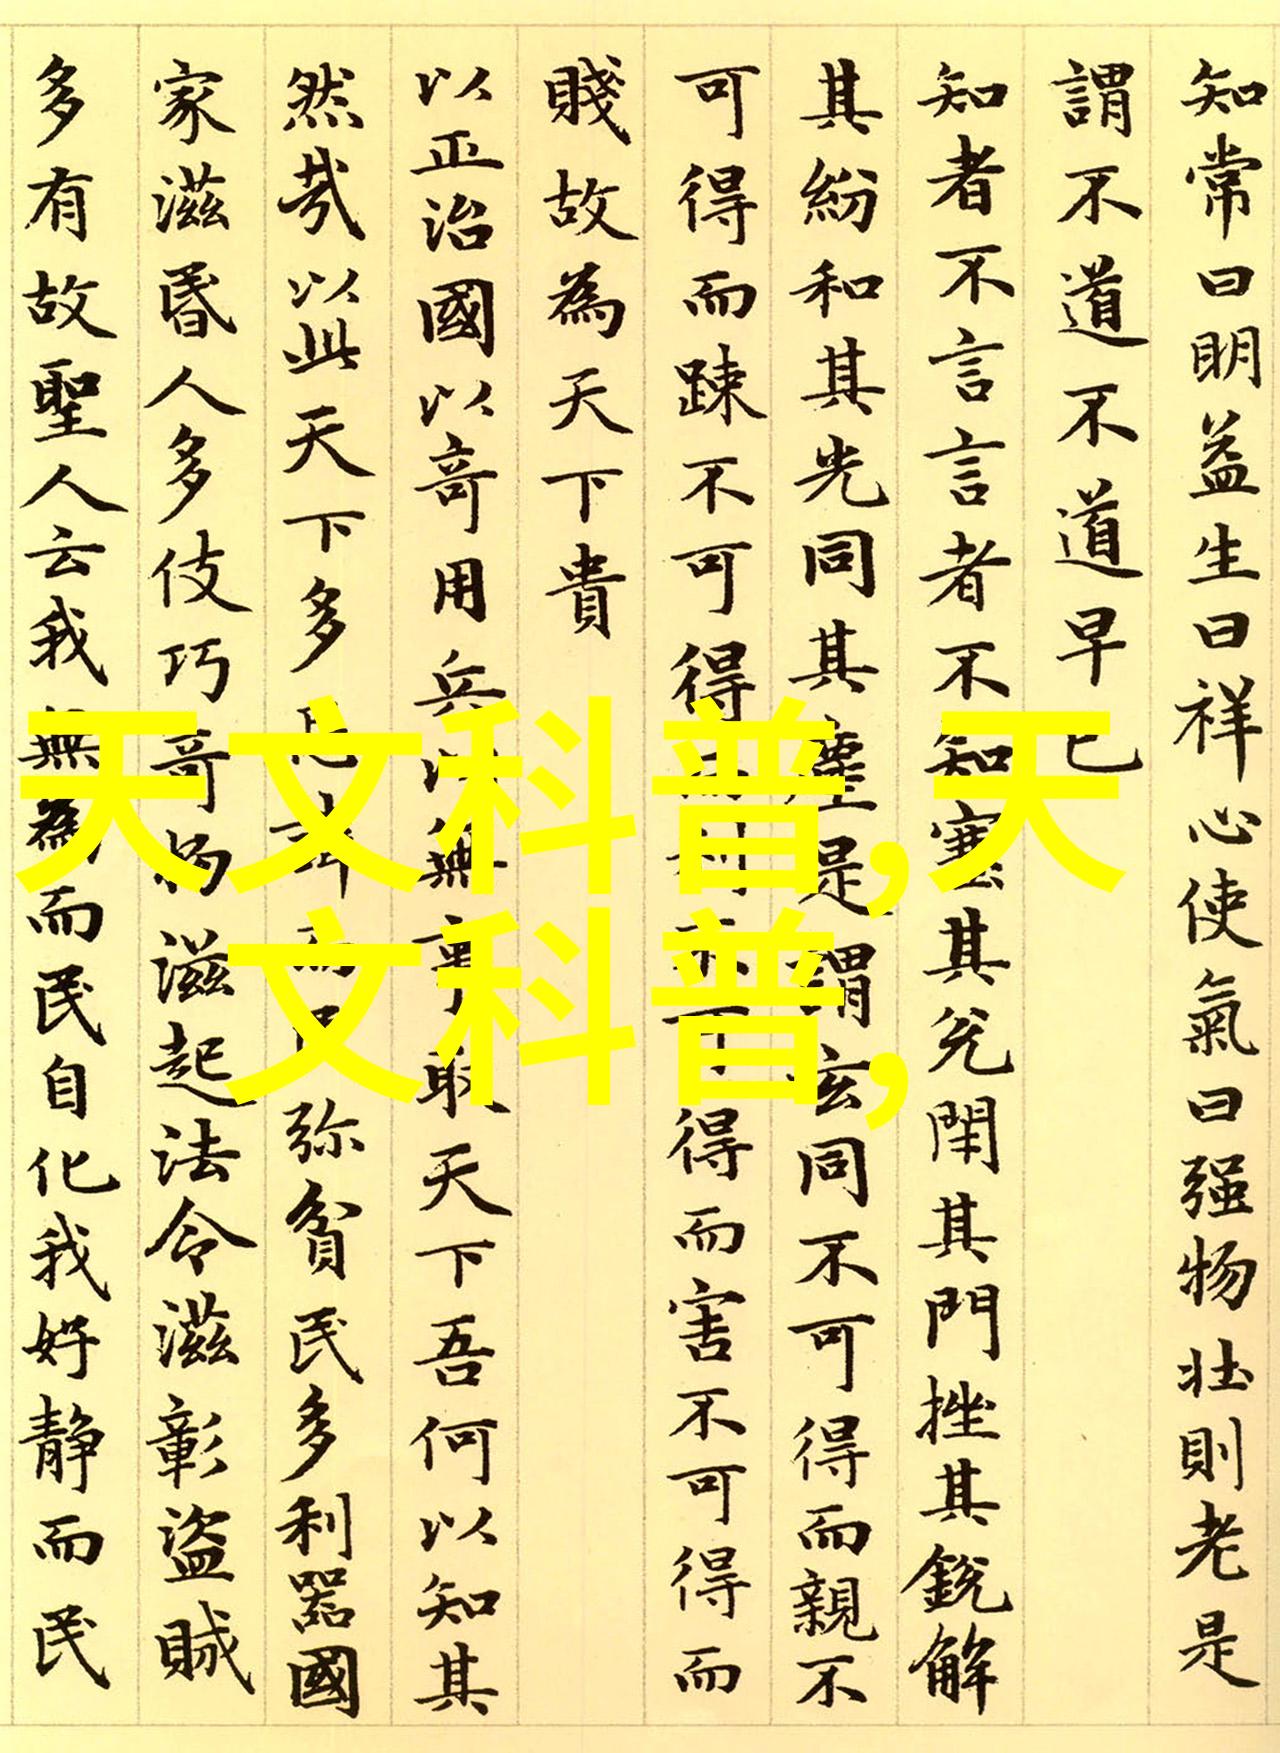 知常曰明益生曰祥心使氣曰强物壯則老是
謂不道不道早已
知者不言言者不知塞其兌閉其門挫其銳解
其紛和其光同其塵是謂玄同不可得而親不
可得而踈不可得而利不可得而害不可得而
賤故為天下貴
以正治國以奇用兵以無事取天下吾何以知其
然哉以此天下多忌諱而民弥貧民多利器國
家滋昬人多伎巧奇物滋起法令滋彰盜賊
多有故聖人云我無為而民自化我好静而民
天文科普,天
文科普,